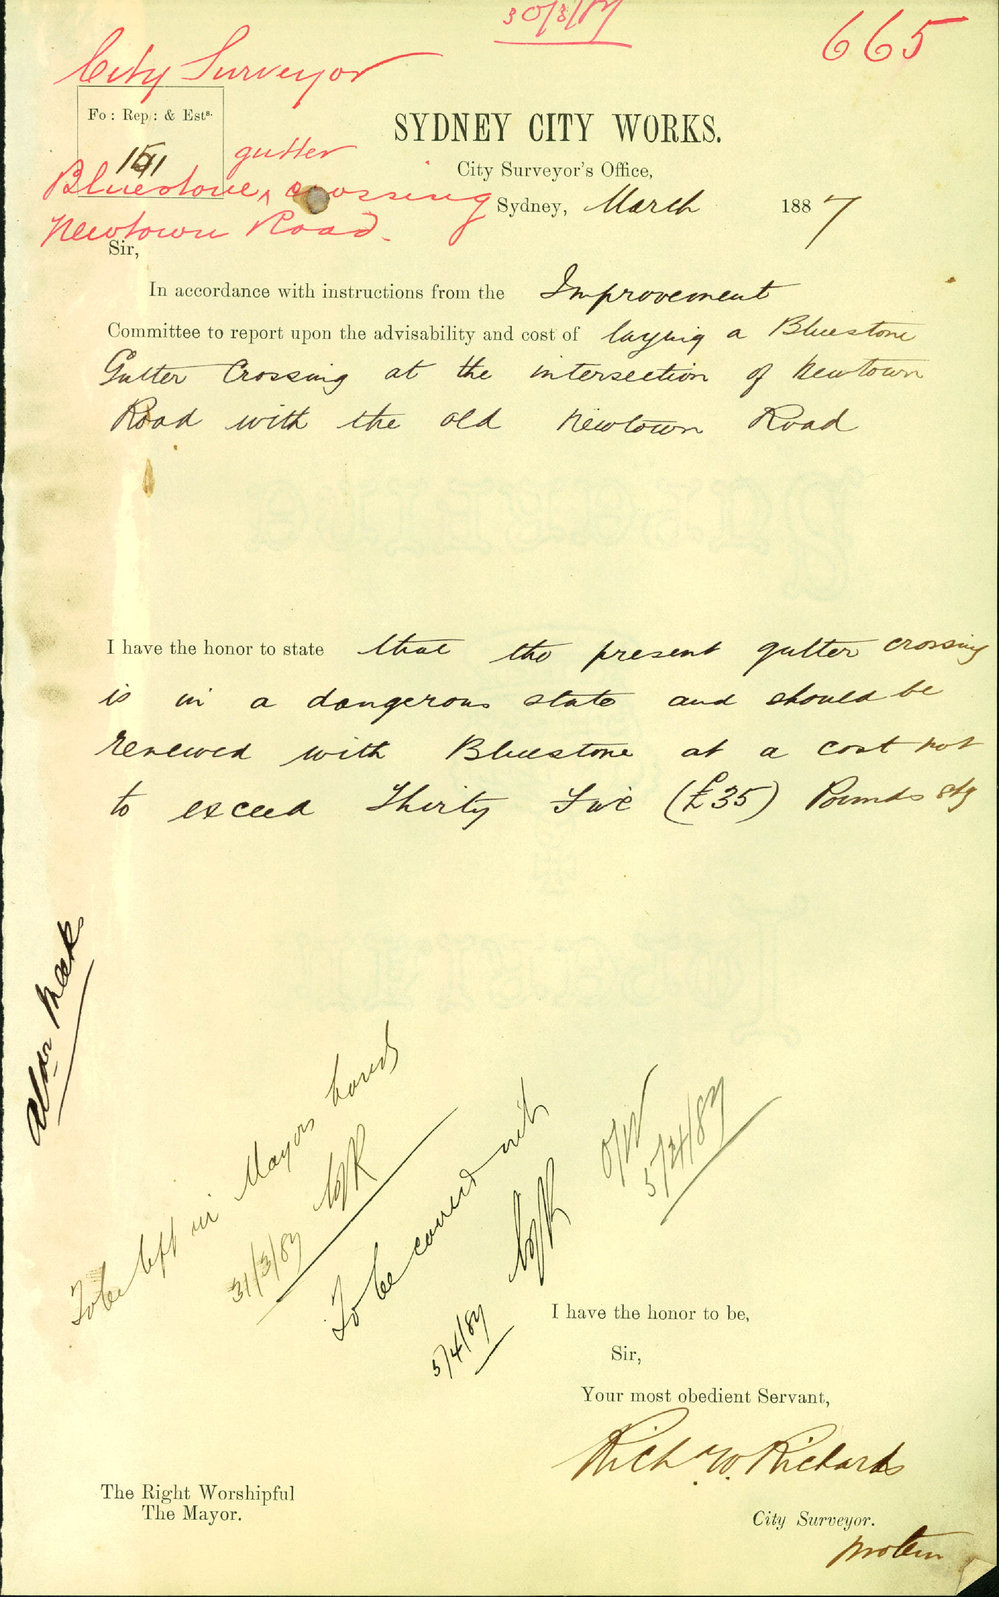 30/3/87
665
City Surveyor
Fo: Rep: & Ests.
gutter
Bluestone ^ crossing
Newtown Road.
SYDNEY CITY WORKS.
City Surveyor's Office,
Sydney, March 1887
Sir,
In accordance with instructions from the Improvement
Committee to report upon the advisability and cost of laying a Bluestone
Gutter Crossing at the intersection of Newtown
Road with the old Newtown Road
I have the honor to state that the present gutter crossing
is in a dangerous state and should be
renewed with Bluestone at a cost not
to exceed Thirty Five (£35) Pounds stg
Aldn Meeks
To be left in Mayors hands
31/3/87
To be concurred with
5/4/87
5/4/87
I have the honor to be,
Sir,
Your most obedient Servant,
Rich W. Richards
The Right Worshipful
The Mayor.
City Surveyor.
protem